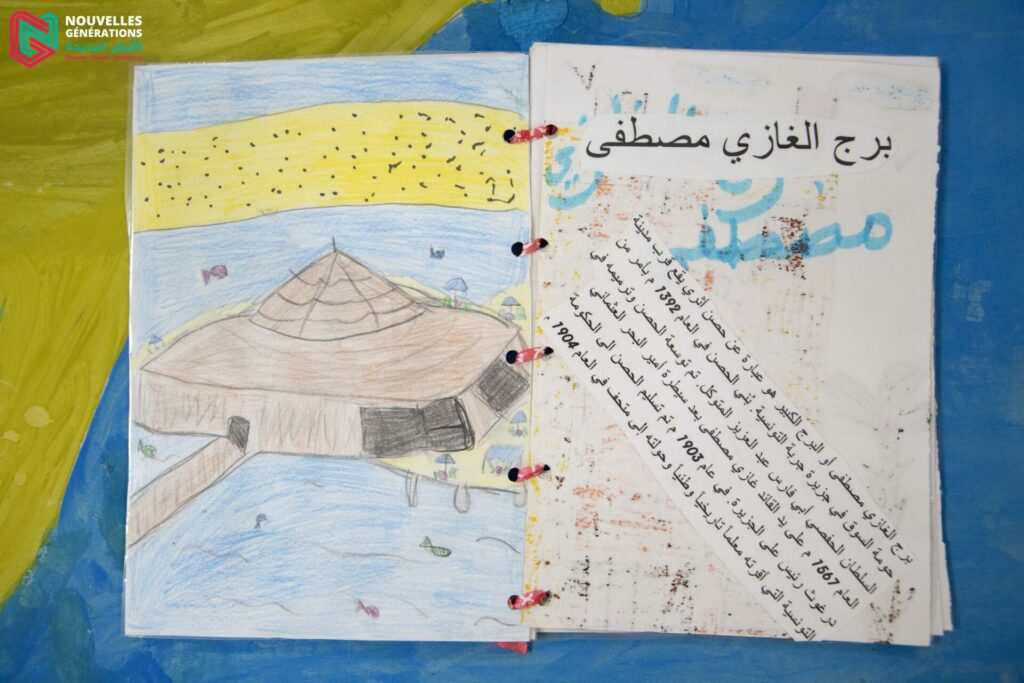 NOUVELLES
GÉNÉRATIONS
الأجيال الجديدة
برج الغازي مصطفى
مصطفى
برج الغازي مصطفى أو البرج الكبير هو عبارة عن حصن أثري يقع قرب مدينة
حومة السوق في جزيرة جربة التونسية. بُني الحصن في العام 1392 م بأمر من
السلطان الحفصي ابي فارس عبد العزيز المتوكل. تم توسعة الحصن وترميمه في
العام 1567 م على يد القائد غازي مصطفى بعد سيطرة أمير البحر العثماني
درغوث رئيس على الجزيرة. في عام 1903 م تم تسليم الحصن الى الحكومة
التونسية التي أقرته معلماً تاريخياً وطنياً وحولته إلى متحف في العام 1904 م